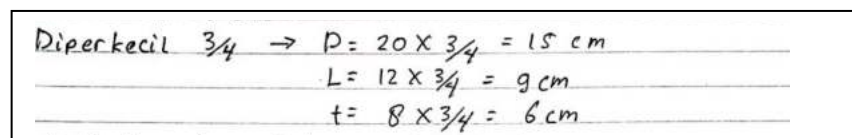 Diperkecil 3/4 → P = 20 X 3/4 = 15 cm
L = 12 X 3/4 = 9 cm
t = 8 X 3/4 = 6 cm